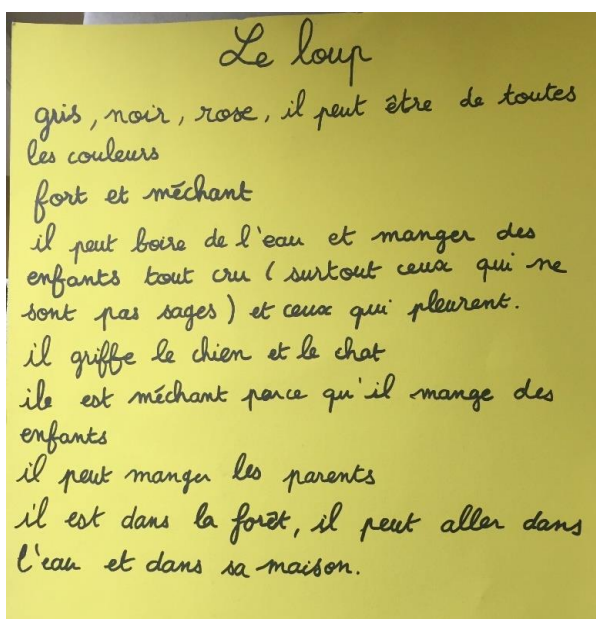 Le loup
gris, noir, rose, il peut être de toutes
les couleurs
fort et méchant
il peut boire de l'eau et manger des
enfants tout cru (surtout ceux qui ne
sont pas sages) et ceux qui pleurent.
il griffe le chien et le chat
ile est méchant parce qu'il mange des
enfants
il peut manger les parents
il est dans la forêt, il peut aller dans
l'eau et dans sa maison.